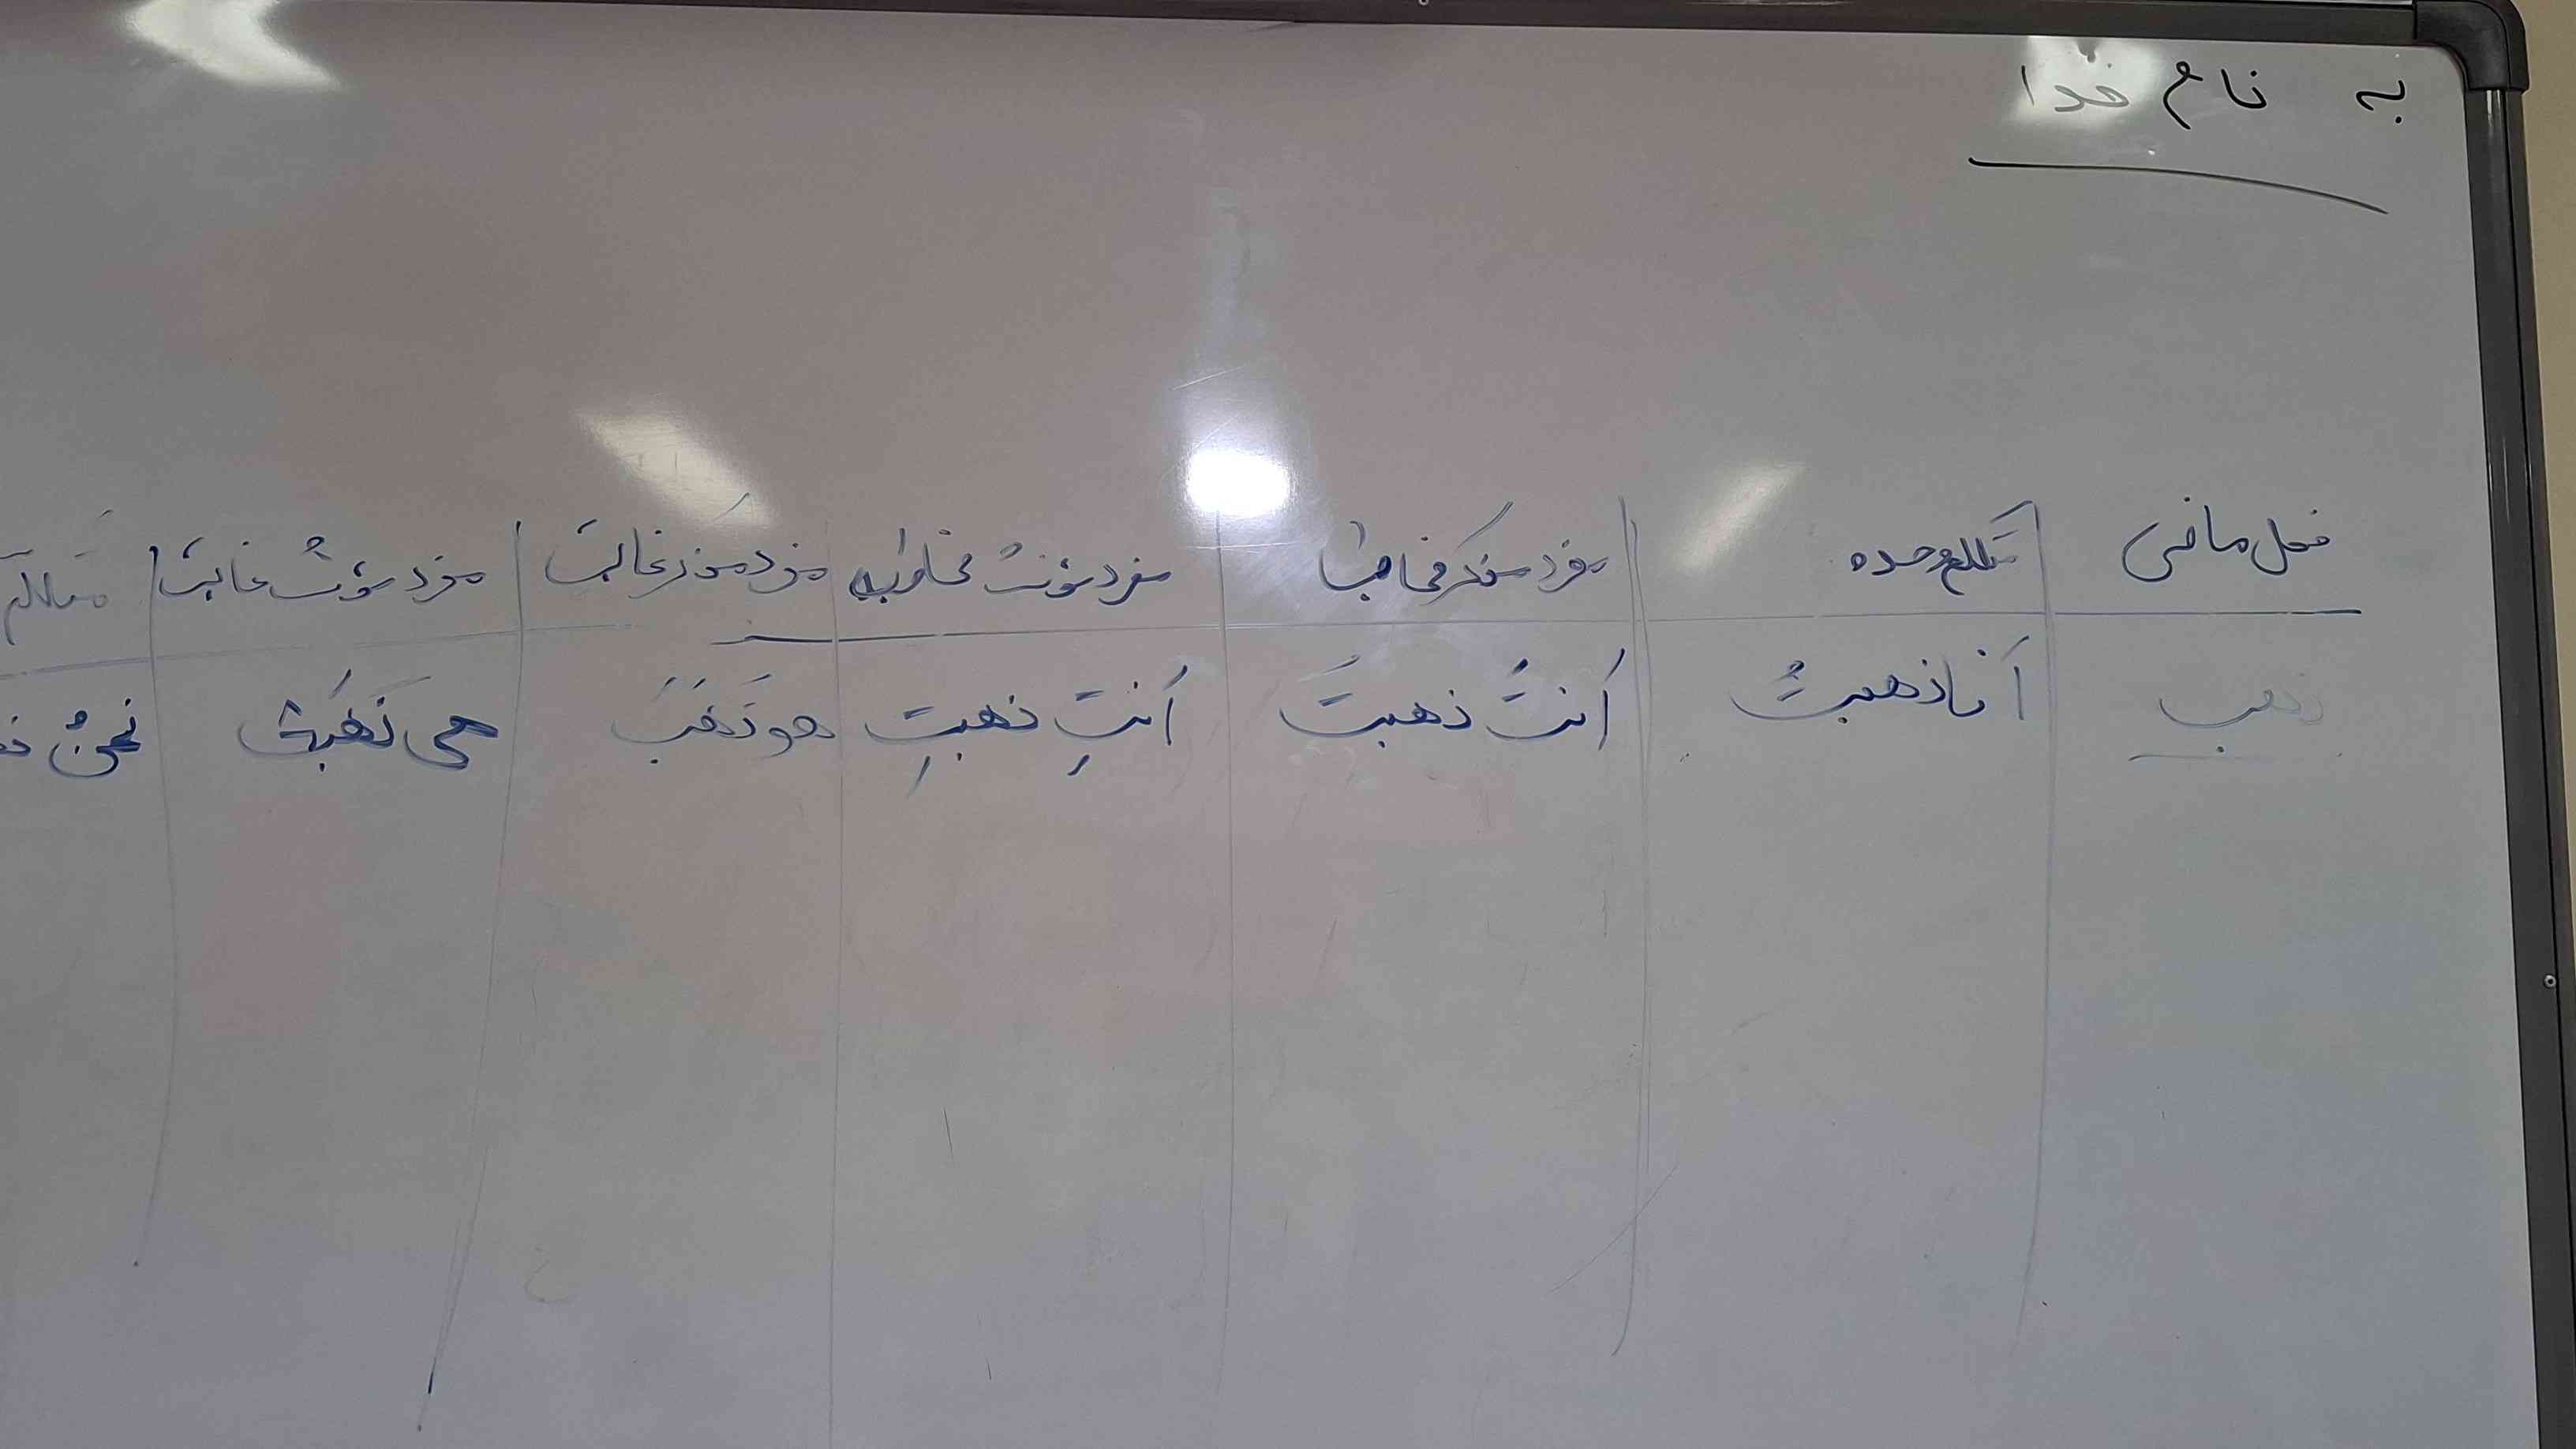 به نام خدا
فعل ماضی | متکلم وحده | مفرد مذکر مخاطب | مفرد مؤنث مخاطب | مفرد مذکر غایب | مفرد مؤنث غایب
ذهب | أنا ذهبتُ | أَنتَ ذهبتَ | أَنتِ ذهبتِ | هو ذَهَبَ | هی ذَهَبَتْ | نحنُ